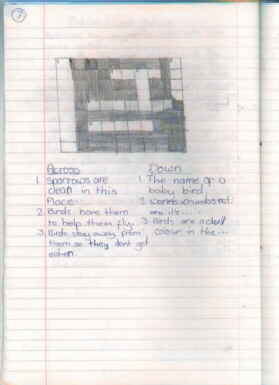 7
Across
1. Sparrows are
clean in this
place.
2. Birds have them
to help them fly.
3. Birds stay away from
them so they dont get
eaten.
Down
1. The name of a
baby bird.
2. Worms
on it's ....
3. Birds are a dull
colour in the ...